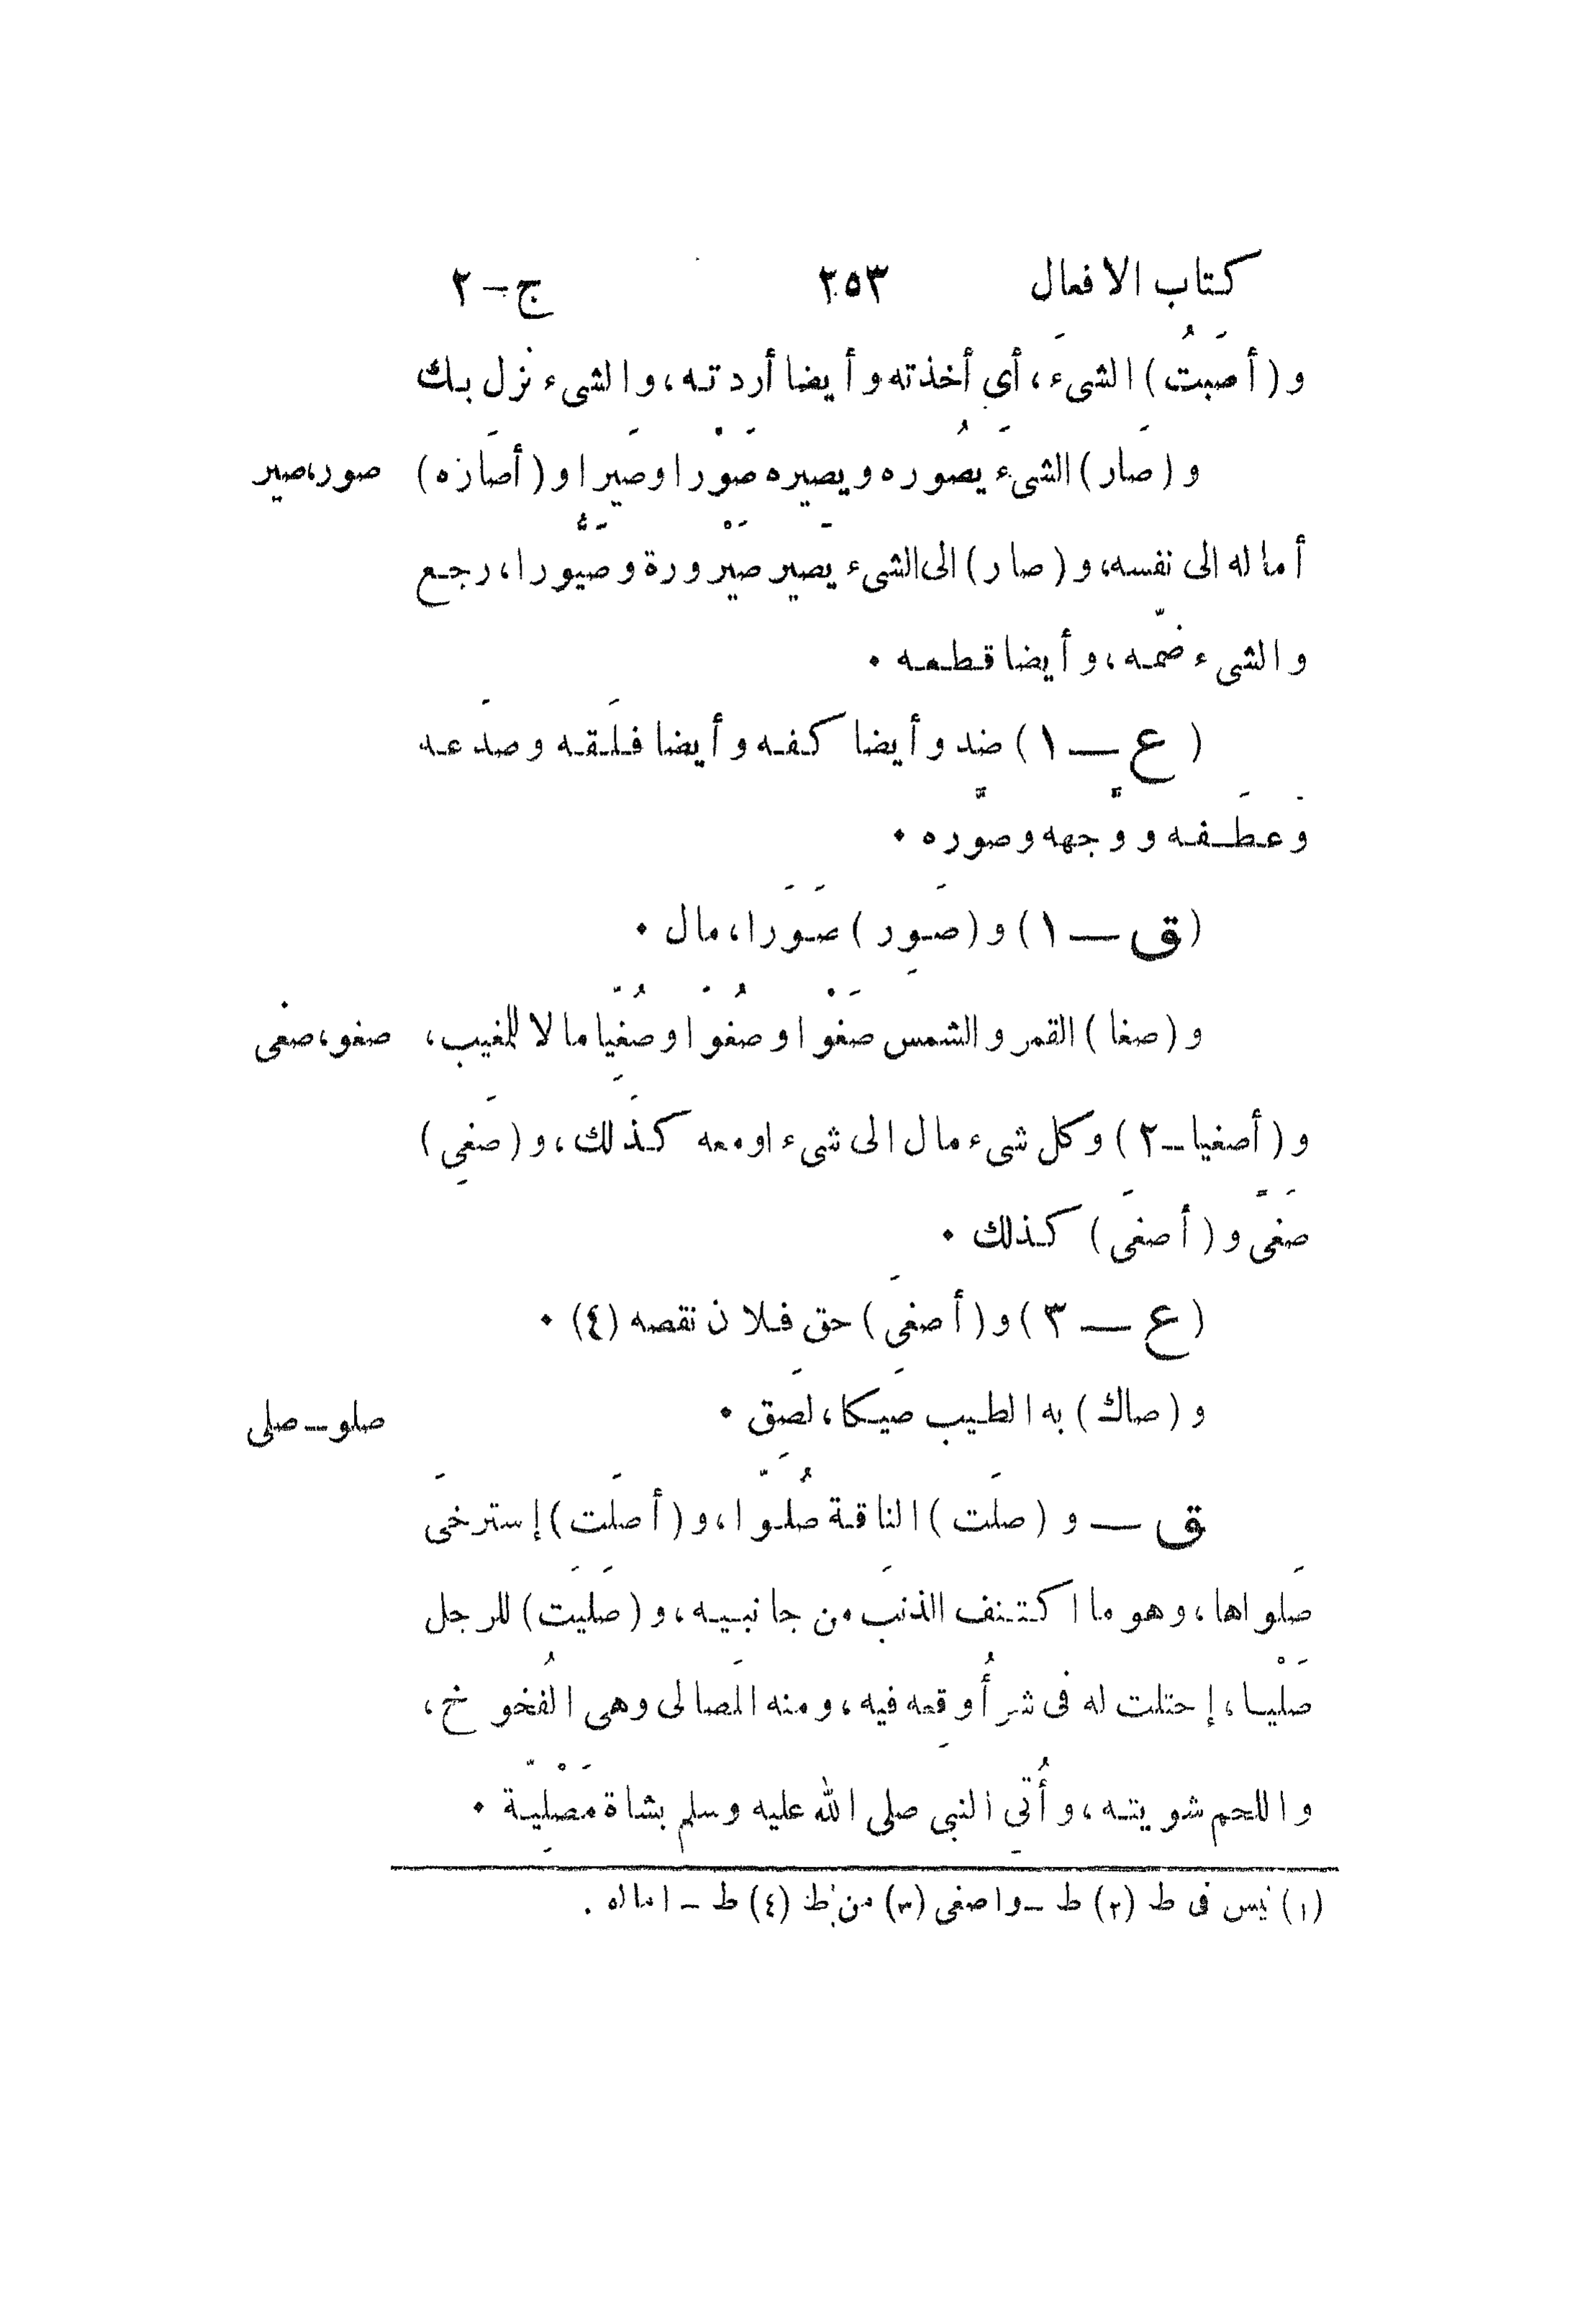 كتاب الافعال ٢٥٣ ج – ٢
و (أصَبتُ) الشىءَ، أى أخذته وأيضا أردته، والشىء نزل بك
و (صَار) الشىءَ يصُوره ويصيره صَوْرا وصَيرا و (أصَاره) صور، صير
أماله الى نفسه، و (صار) الى الشىء يَصير صَيْرورة وصَيُّورا، رجع
والشىء ضمّه، وأيضا قطعه •
(ع – ١) ضد وأيضا كفه وأيضا فلَقه وصدَعه
وَعطَفه ووجّهه وصوّره •
(ق – ١) و (صَوِر) صَوَرا، مال •
و (صغا) القمر والشمس صَغْوا وصُغُوّا وصُغِيّا مالا للمغيب، صغو، صغى
و (أصغيا – ٢) وكل شىء مال الى شىء او معه كذَلك، و (صَغِى)
صَغًى و (أصغَى) كذلك •
(ع – ٣) و (أصغَى) حق فلان نقصه (٤) •
و (صاك) به الطيب صَيكا، لصَِق • صلو – صلى
ق – و (صلَت) الناقة صُلُوّا، و (أصلَت) إسترخَى
صَلواها، وهو ما اكتنف الذنَب من جانبيه، و (صَليَت) للرجل
صَلْيا، إحتلت له فى شر أُوقِعه فيه، ومنه المَصالى وهى الفُخوخ،
واللحم شويته، وأُتِى النبى صلى الله عليه وسلم بشاة مَصْلِيّة •
(١) ليس فى ط (٢) ط – واصغى (٣) من ط (٤) ط – اماله .